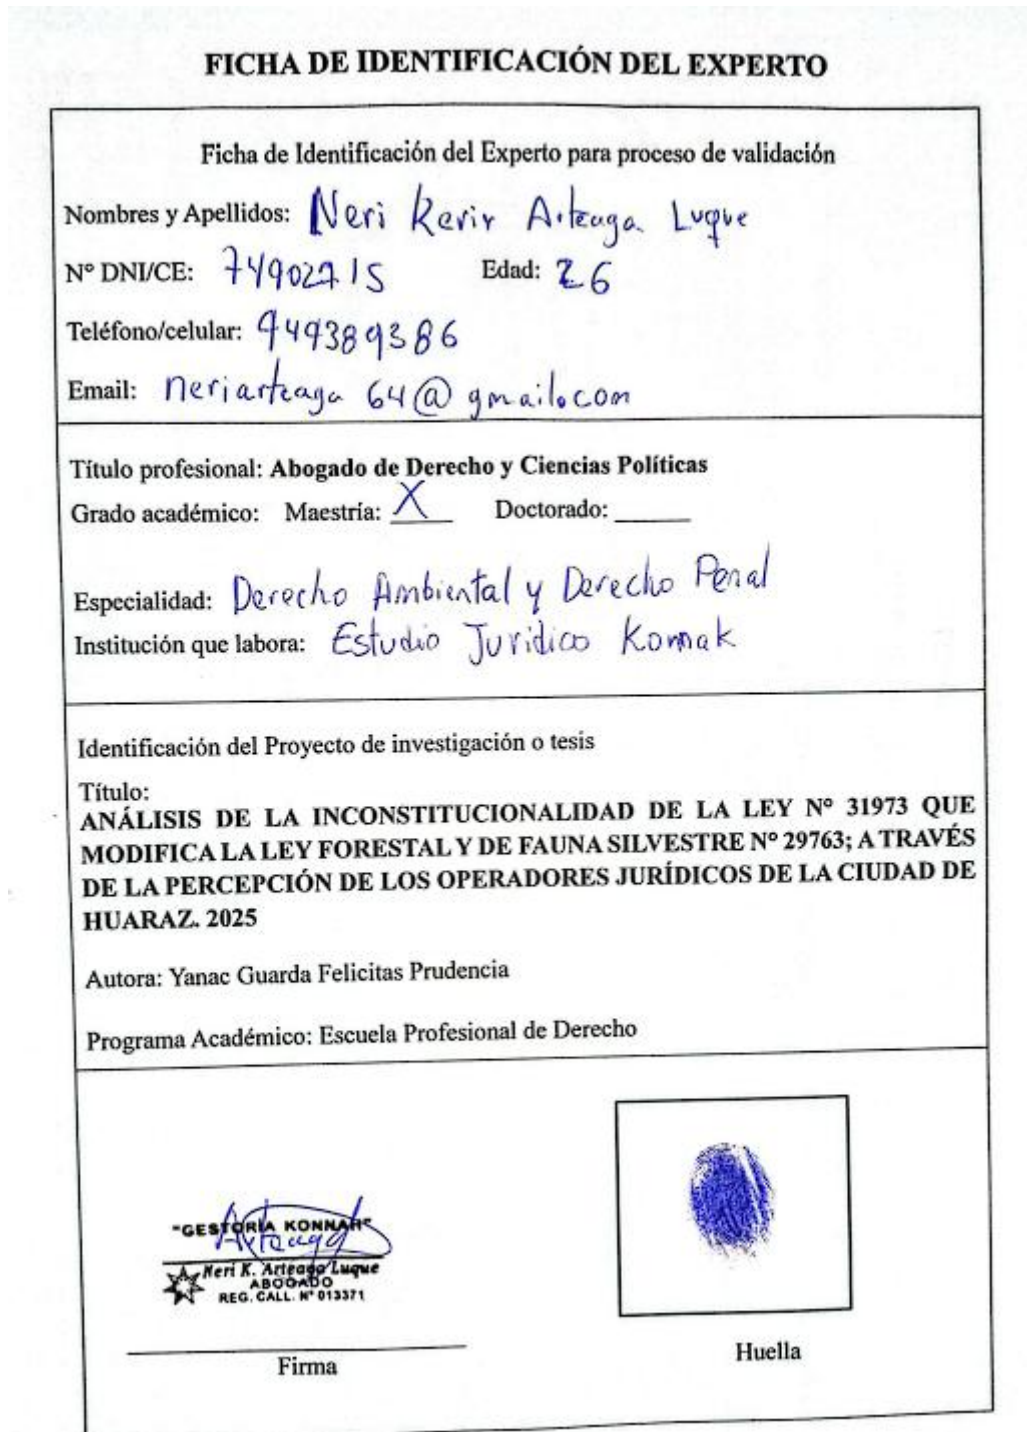 FICHA DE IDENTIFICACIÓN DEL EXPERTO
Ficha de Identificación del Experto para proceso de validación
Nombres y Apellidos: Neri Kevir Arteaga Luque
Nº DNI/CE: 74902715 Edad: 26
Teléfono/celular: 949389386
Email: neriarteaga 64@gmail.com
Título profesional: Abogado de Derecho y Ciencias Políticas
Grado académico: Maestría: X Doctorado:
Especialidad: Derecho Ambiental y Derecho Penal
Institución que labora: Estudio Juridico Konnak
Identificación del Proyecto de investigación o tesis
Título:
ANÁLISIS DE LA INCONSTITUCIONALIDAD DE LA LEY Nº 31973 QUE
MODIFICA LA LEY FORESTAL Y DE FAUNA SILVESTRE Nº 29763; A TRAVÉS
DE LA PERCEPCIÓN DE LOS OPERADORES JURÍDICOS DE LA CIUDAD DE
HUARAZ. 2025
Autora: Yanac Guarda Felicitas Prudencia
Programa Académico: Escuela Profesional de Derecho
"GESTORIA
Arteaga
Neri K. Arteaga Luque
ABOGADO
REG. CALL. Nº 013371
Firma
Huella